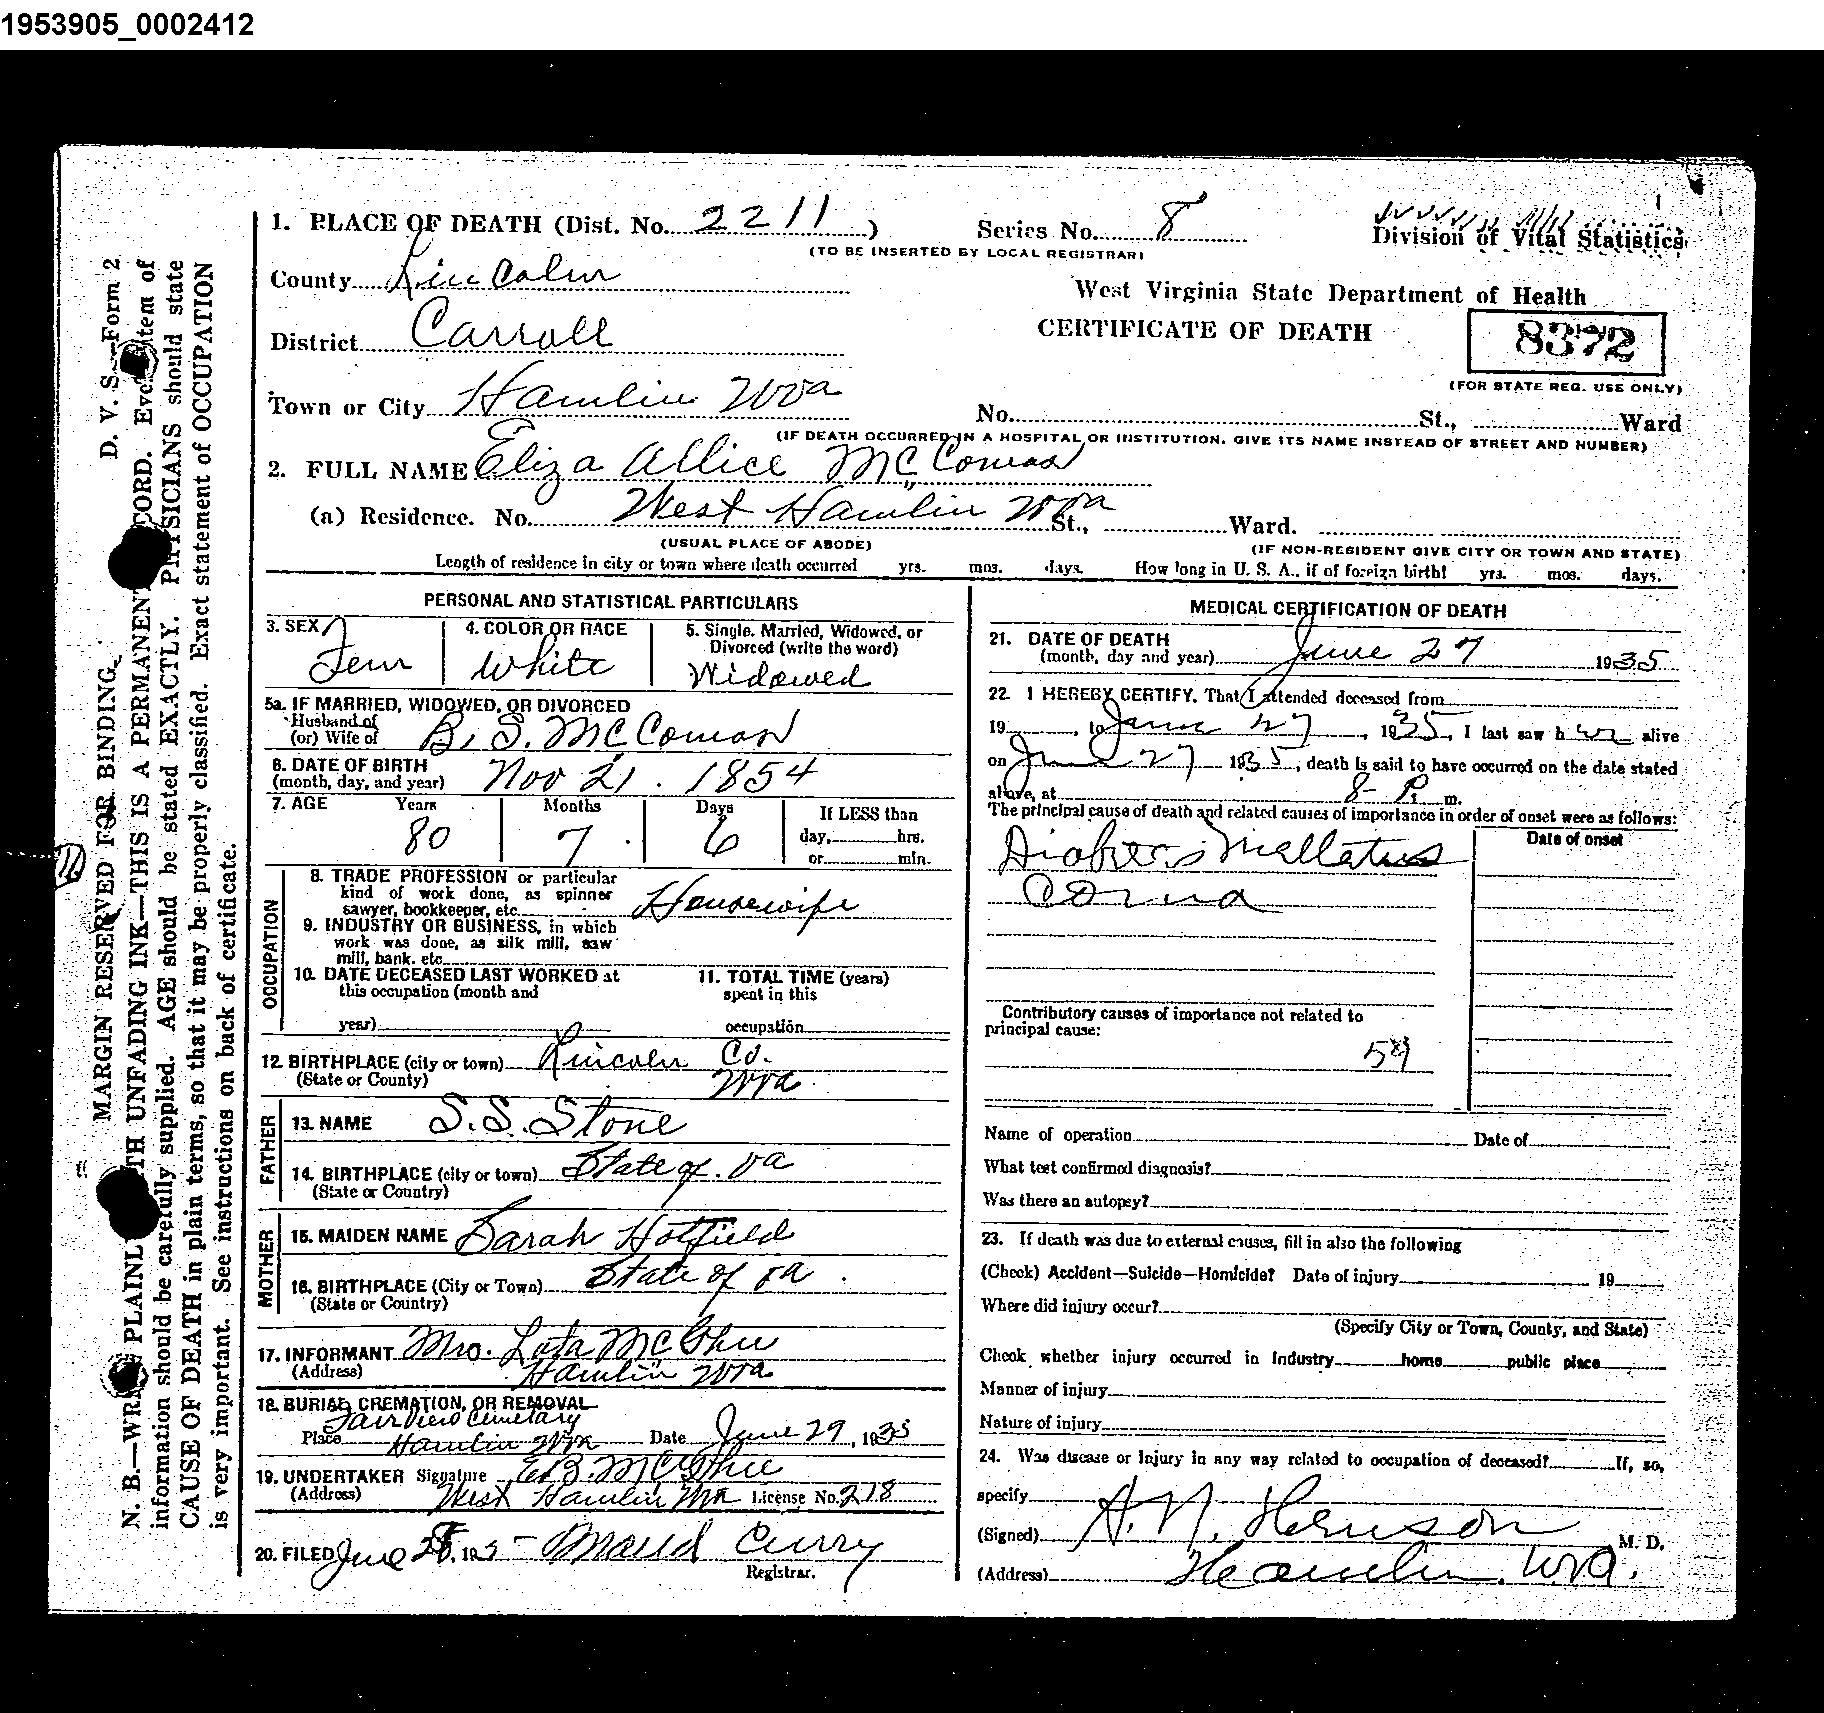 1953905_0002412
1. PLACE OF DEATH (Dist. No. 2211 )
Series No. 8
Division of Vital Statistics
(TO BE INSERTED BY LOCAL REGISTRAR)
County Lincoln
West Virginia State Department of Health
CERTIFICATE OF DEATH
8372
(FOR STATE REG. USE ONLY)
District Carroll
Town or City Hamlin Wva
No. St., Ward
(IF DEATH OCCURRED IN A HOSPITAL OR INSTITUTION, GIVE ITS NAME INSTEAD OF STREET AND NUMBER)
2. FULL NAME Eliza Allice McComas
(a) Residence. No. West Hamlin Wva St., Ward.
(USUAL PLACE OF ABODE)
(IF NON-RESIDENT GIVE CITY OR TOWN AND STATE)
Length of residence in city or town where death occurred yrs. mos. days. How long in U. S. A., if of foreign birth? yrs. mos. days.
PERSONAL AND STATISTICAL PARTICULARS
3. SEX Fem
4. COLOR OR RACE White
5. Single, Married, Widowed, or Divorced (write the word) Widowed
5a. IF MARRIED, WIDOWED, OR DIVORCED
Husband of
(or) Wife of B. S. McComas
6. DATE OF BIRTH
(month, day, and year) Nov 21. 1854
7. AGE Years Months Days If LESS than
80 7 6 day, hrs.
or min.
OCCUPATION
8. TRADE PROFESSION or particular
kind of work done, as spinner
sawyer, bookkeeper, etc. Housewife
9. INDUSTRY OR BUSINESS, in which
work was done, as silk mill, saw
mill, bank, etc.
10. DATE DECEASED LAST WORKED at
this occupation (month and
year)
11. TOTAL TIME (years)
spent in this
occupation
12. BIRTHPLACE (city or town) Lincoln Co.
(State or County) Wva.
FATHER
13. NAME S.S. Stone
14. BIRTHPLACE (city or town) State of. Va
(State or Country)
MOTHER
15. MAIDEN NAME Sarah Hatfield
16. BIRTHPLACE (City or Town) State of Va.
(State or Country)
17. INFORMANT Mrs. Lota McGhee
(Address) Hamlin Wva
18. BURIAL, CREMATION, OR REMOVAL
Fairview Cemetary
Place Hamlin Wva Date June 29, 1935
19. UNDERTAKER Signature E.B. McGhee
(Address) West Hamlin Wva License No. 218
20. FILED June 28, 193 Maud Curry
Registrar.
MEDICAL CERTIFICATION OF DEATH
21. DATE OF DEATH
(month, day and year) June 27 1935
22. I HEREBY CERTIFY. That I attended deceased from
19 , to June 27, 1935, I last saw her alive
on June 27 1935, death is said to have occurred on the date stated
above, at 8- P. m.
The principal cause of death and related causes of importance in order of onset were as follows:
Date of onset
Diabetes Mellatus
Coma
Contributory causes of importance not related to
principal cause:
59
Name of operation Date of
What test confirmed diagnosis?
Was there an autopsy?
23. If death was due to external causes, fill in also the following
(Check) Accident—Suicide—Homicide? Date of injury 19
Where did injury occur?
(Specify City or Town, County, and State)
Check whether injury occurred in Industry home public place
Manner of injury
Nature of injury
24. Was disease or Injury in any way related to occupation of deceased? If, so,
specify
(Signed) M. D.
(Address) Hamlin. W.Va.
D. V. S.—Form 2
MARGIN RESERVED FOR BINDING
N. B.—WRITE PLAINLY WITH UNFADING INK—THIS IS A PERMANENT RECORD. Every item of
information should be carefully supplied. AGE should be stated EXACTLY. PHYSICIANS should state
CAUSE OF DEATH in plain terms, so that it may be properly classified. Exact statement of OCCUPATION
is very important. See instructions on back of certificate.